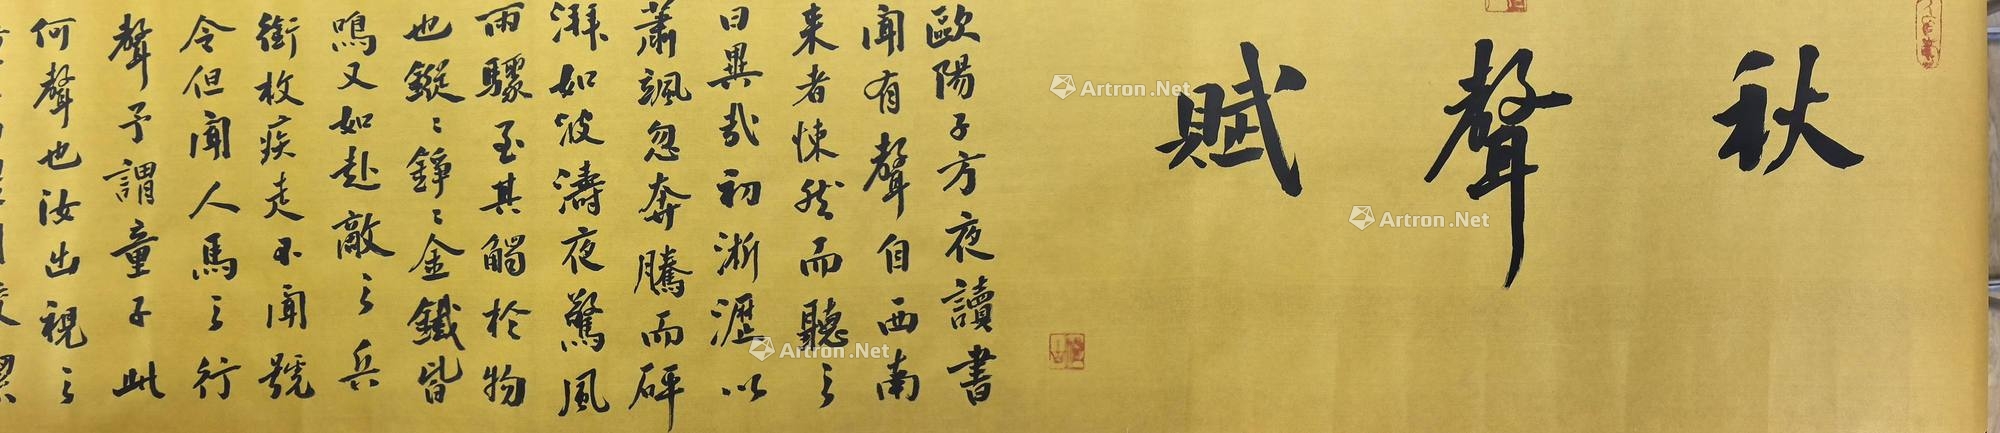 秋聲賦
歐陽子方夜讀書
聞有聲自西南
来者悚然而聽之
曰異哉初淅瀝以
蕭颯忽奔騰而砰
湃如波濤夜驚風
雨驟至其觸於物
也鏦〻錚〻金鐵皆
鳴又如赴敵之兵
銜枚疾走不聞號
令但聞人馬之行
聲予謂童子此
何聲也汝出視之
Artron.Net
Artron.Net
Artron.Net